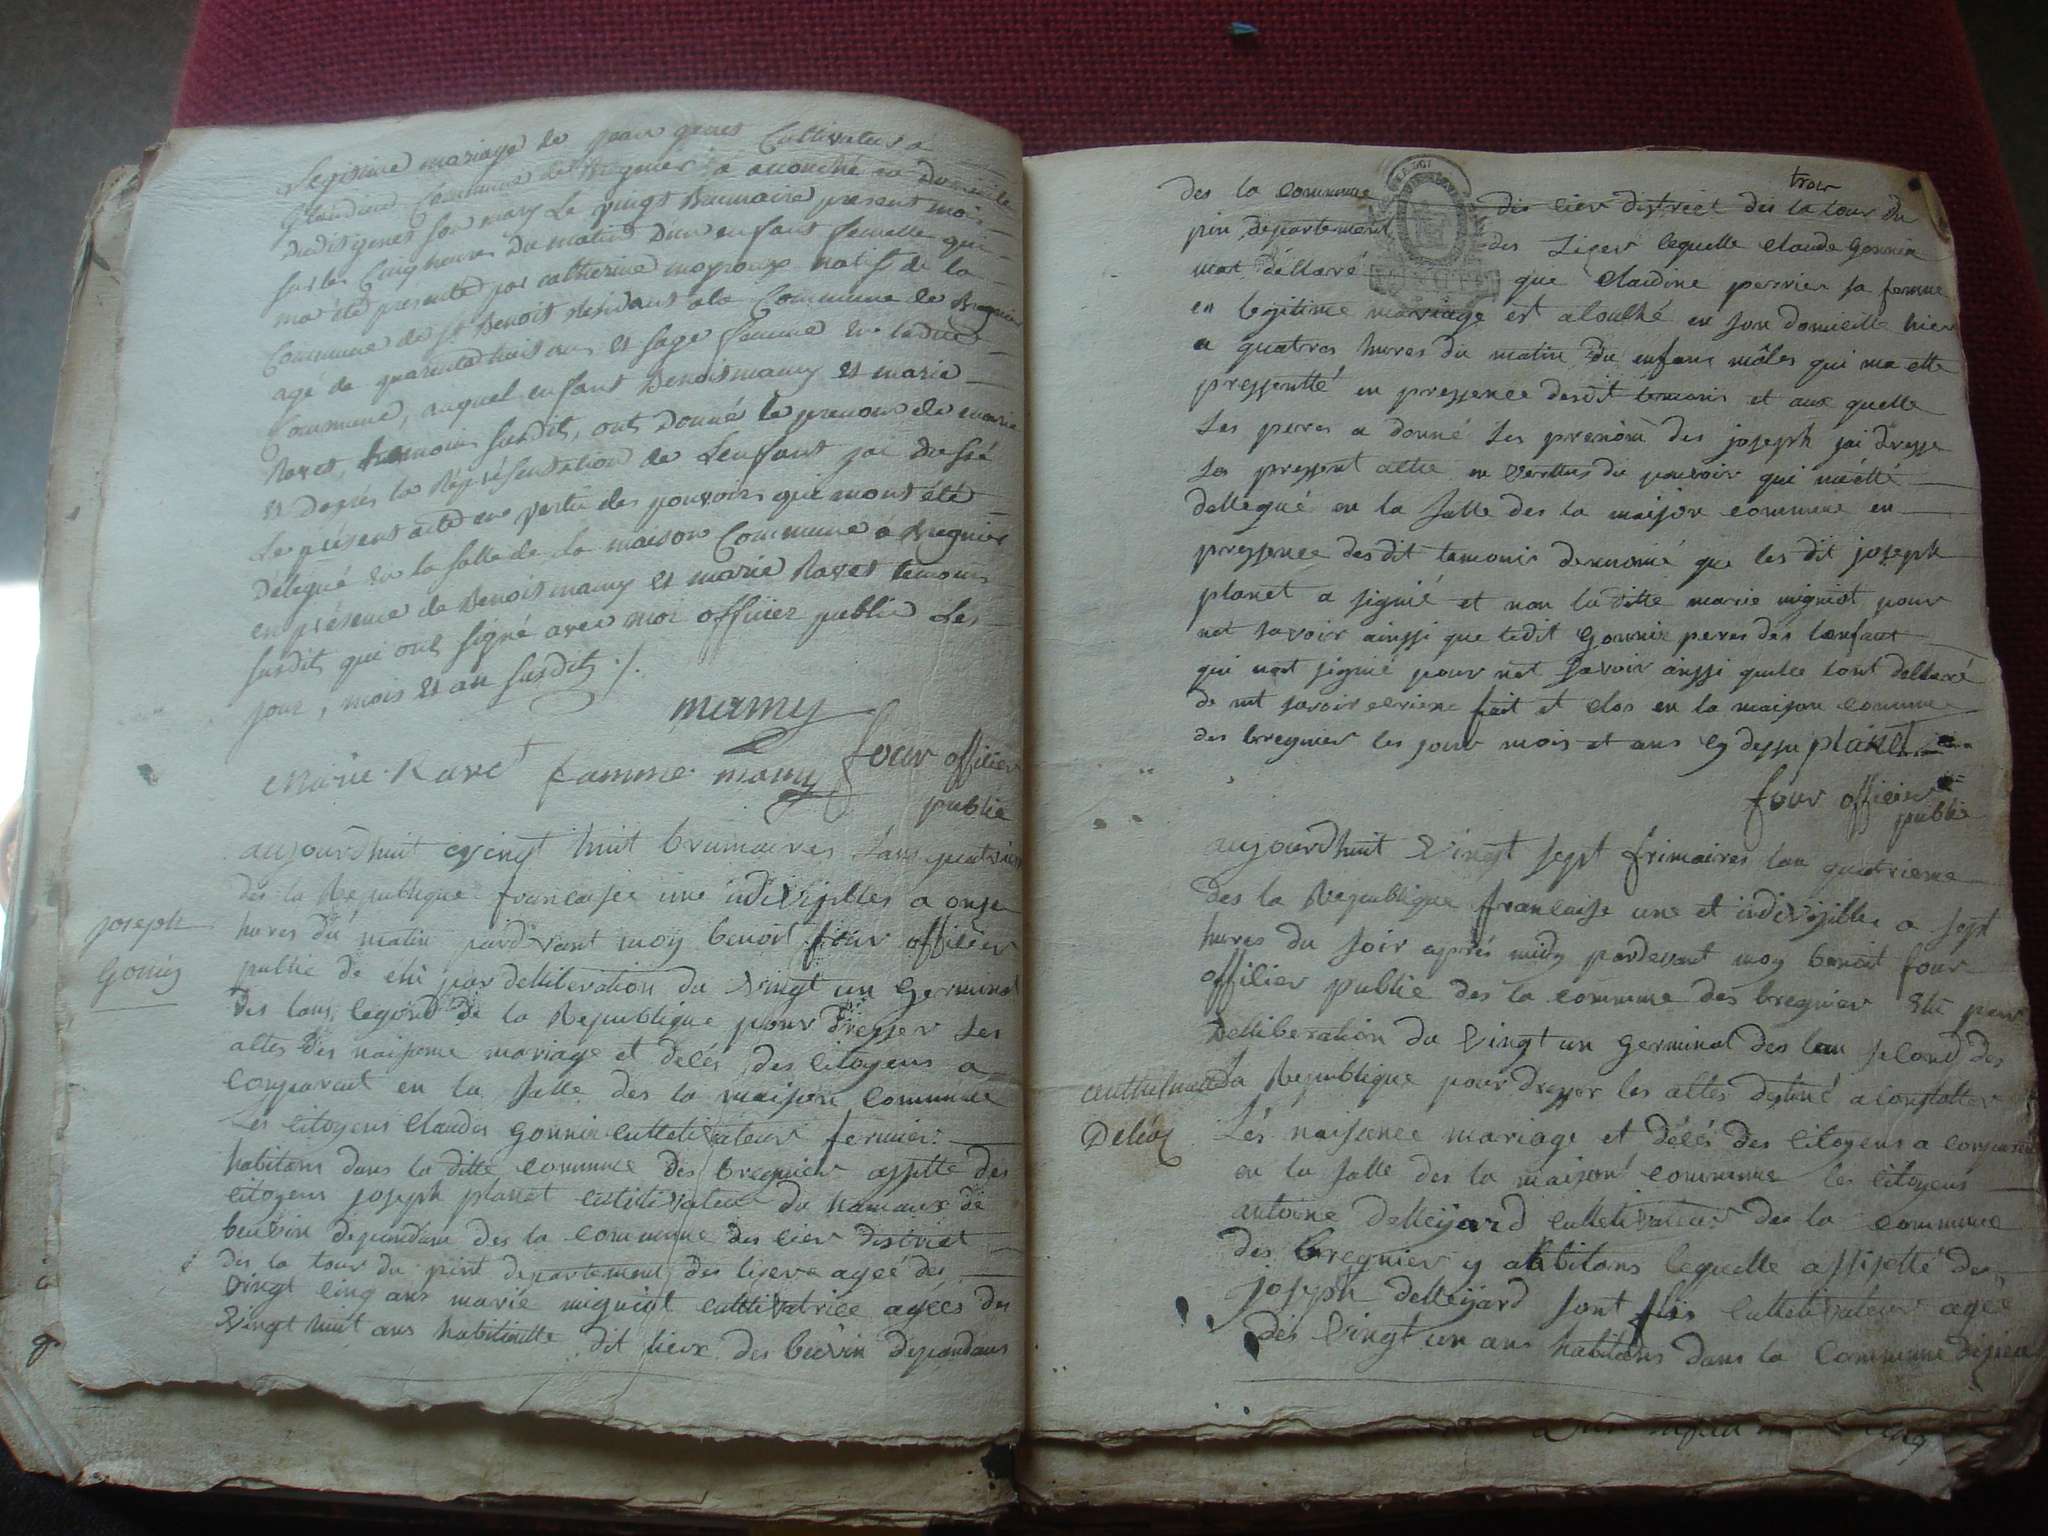 Legitime mariage de jean genet Cultivateur a
Glandieu Commune de Bregnier a accouché en domicile
Dudit genet son mary Le vingt Brumaire present mois
sur les Cinq heures Du matin Dun enfant femelle qui
ma été presenté par catherine natif de la
Commune de St Benoit residant a la Commune de Bregnier
agé de quarentehuit ans et sage femme en ladite
Commune, auquel enfant Benoit mamy et marie
Ravet, temoins susdit, ont Donné le prenom de marie
et Deprés la Représentation de Lenfant jai Dressé
Le présent acte en vertu des pouvoirs qui mont été
Délegué en la salle de la maison Commune a Bregnier
en présence de Benoit mamy et marie Ravet temoins
susdits qui ont signé avec moi officier public Les
jour, mois et an susdits ./.
mamy
Marie Ravet famme mamy four officier
public
aujourdhuit vingt huit brumaires Lans quatrieme
des la Republique francaise une indivisibles a onze
hures du matin pardevant moy benoit four officier
joseph
Gonin
public de élu par delliberation du vingt un Germinal
des lans segond de la Republique pour dresser Les
altes des naisance mariage et délés des citoyens a
comparent en la salle des la maison commune
Les citoyens Claudes Gonnin culletivateur fermier
habitans dans la ditte commune des bregnier assitte des
citoyens joseph planet culletivateur du hamaux de
beuvin dependans des la commune des cier district
des la tour du pint departement des lisere ageé des
vingt cinq ans marie migniot culletivatrice agées du
vingt huit ans habitantte dit lieux des beuvin dependans
trois
des la commune des cier district des la tour du
pin departement des Lizer lequelle claude Gonnin
mat déllarré que Claudine perrier sa femme
en legitime mariage est alouché en son domicille hier
a quatres hures du matin du enfans mâles qui ma ette
pressentté en pressence desdit temoins et aux quelle
Les peres a donné Les prenom des joseph jai dresse
Les pressent alte en verttus du pouvoir qui méttè
dellegué en la salle des la maison commune en
pressence desdit temonis denomé que les dit joseph
planet a signié et non la ditte marie migniot pour
net savoir ainssi que ledit Gonnin peres des lanfant
qui nat signié pour net savoir ainssi quilce sont dellaré
de net savoir ecrire fait et clos en la maison commune
des bregnier les jour mois et ans cy dessu planet
four officier
public
aujourdhuit vingt sept frimaires lan quatrieme
des la Republique francaise une et indivisibles a sept
hures du soir aprés midy pardevant moy benoit four
offilier public des la commune des bregnier élu par
Delliberation du vingt un Germinal des lan second des
La Republique pour dresser les altes destiné a constatter
Delég
Lés naissence mariage et délés des citoyens a comparu
en la salle des la maison commune les citoyens
antoine delleijard culletivateur de la commune
des bregnier y abitans lequelle assistté de
joseph delleijard sont fils culletivateur ageé
dés vingt un ans habitans dans la commune